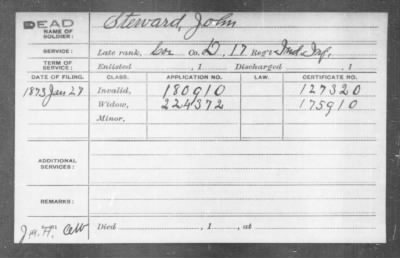 DEAD
NAME OF SOLDIER: Steward, John
SERVICE: Late rank, Cor Co. D, 17 Reg't Ind. Inf.
TERM OF SERVICE: Enlisted , 1 Discharged , 1
DATE OF FILING. CLASS. APPLICATION NO. LAW. CERTIFICATE NO.
Invalid, 180910 127320
1873 Jan 27 Widow, 224372 175910
Minor,
ADDITIONAL SERVICES:
REMARKS:
Died , 1 , at